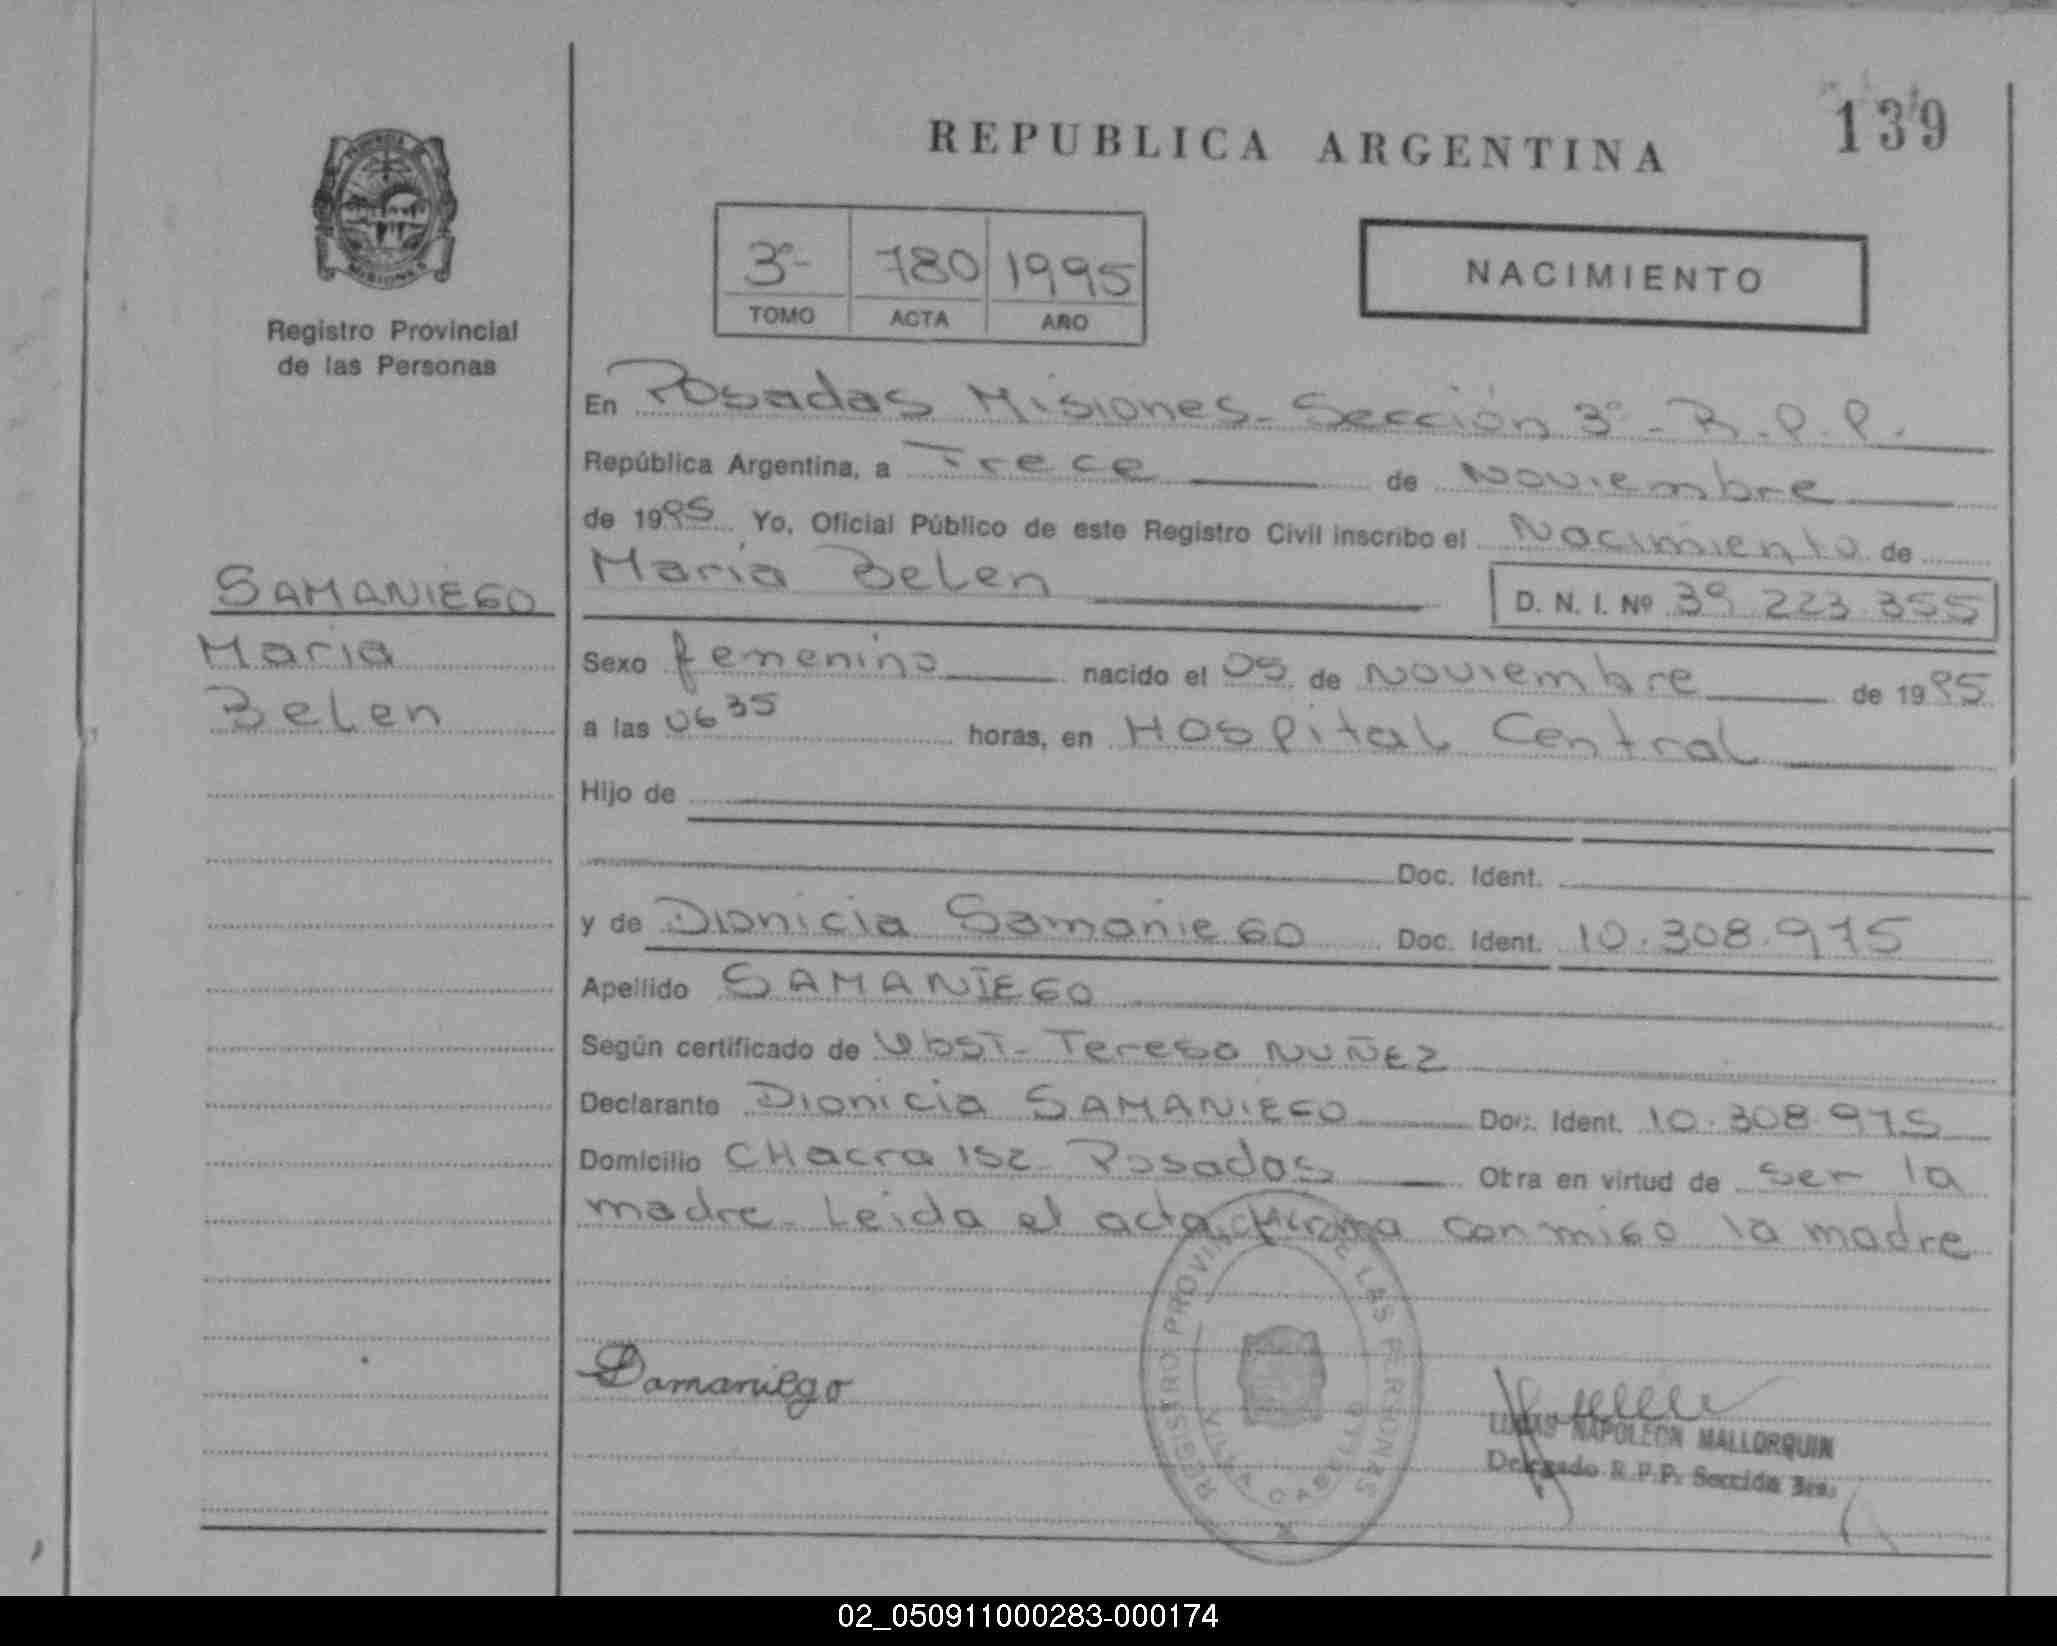 139
REPUBLICA ARGENTINA
3º- 780 1995
TOMO ACTA AÑO
NACIMIENTO
MISIONES
Registro Provincial
de las Personas
SAMANIEGO
Maria
Belen
En Posadas Misiones - Sección 3º - R.P.P.
República Argentina, a Trece de Noviembre
de 1995 Yo, Oficial Público de este Registro Civil inscribo el Nacimiento de
Maria Belen D. N. I. Nº 39 223 355
Sexo femenino nacido el 05 de Noviembre de 1995
a las 06 35 horas, en Hospital Central
Hijo de
Doc. Ident.
y de Dionicia Samaniego Doc. Ident. 10.308.975
Apellido SAMANIEGO
Según certificado de Obst- Teresa NUÑEZ
Declarante Dionicia SAMANIEGO Doc. Ident. 10.308.975
Domicilio CHacra 152 - Posadas Otra en virtud de ser la
madre - Leida el acta, firma conmigo la madre
Samaniego
REGISTRO PROVINCIAL DE LAS PERSONAS
VILLA CABELLO
LUCAS NAPOLEON MALLORQUIN
Delegado R.P.P. Sección 3ra.
02_050911000283-000174